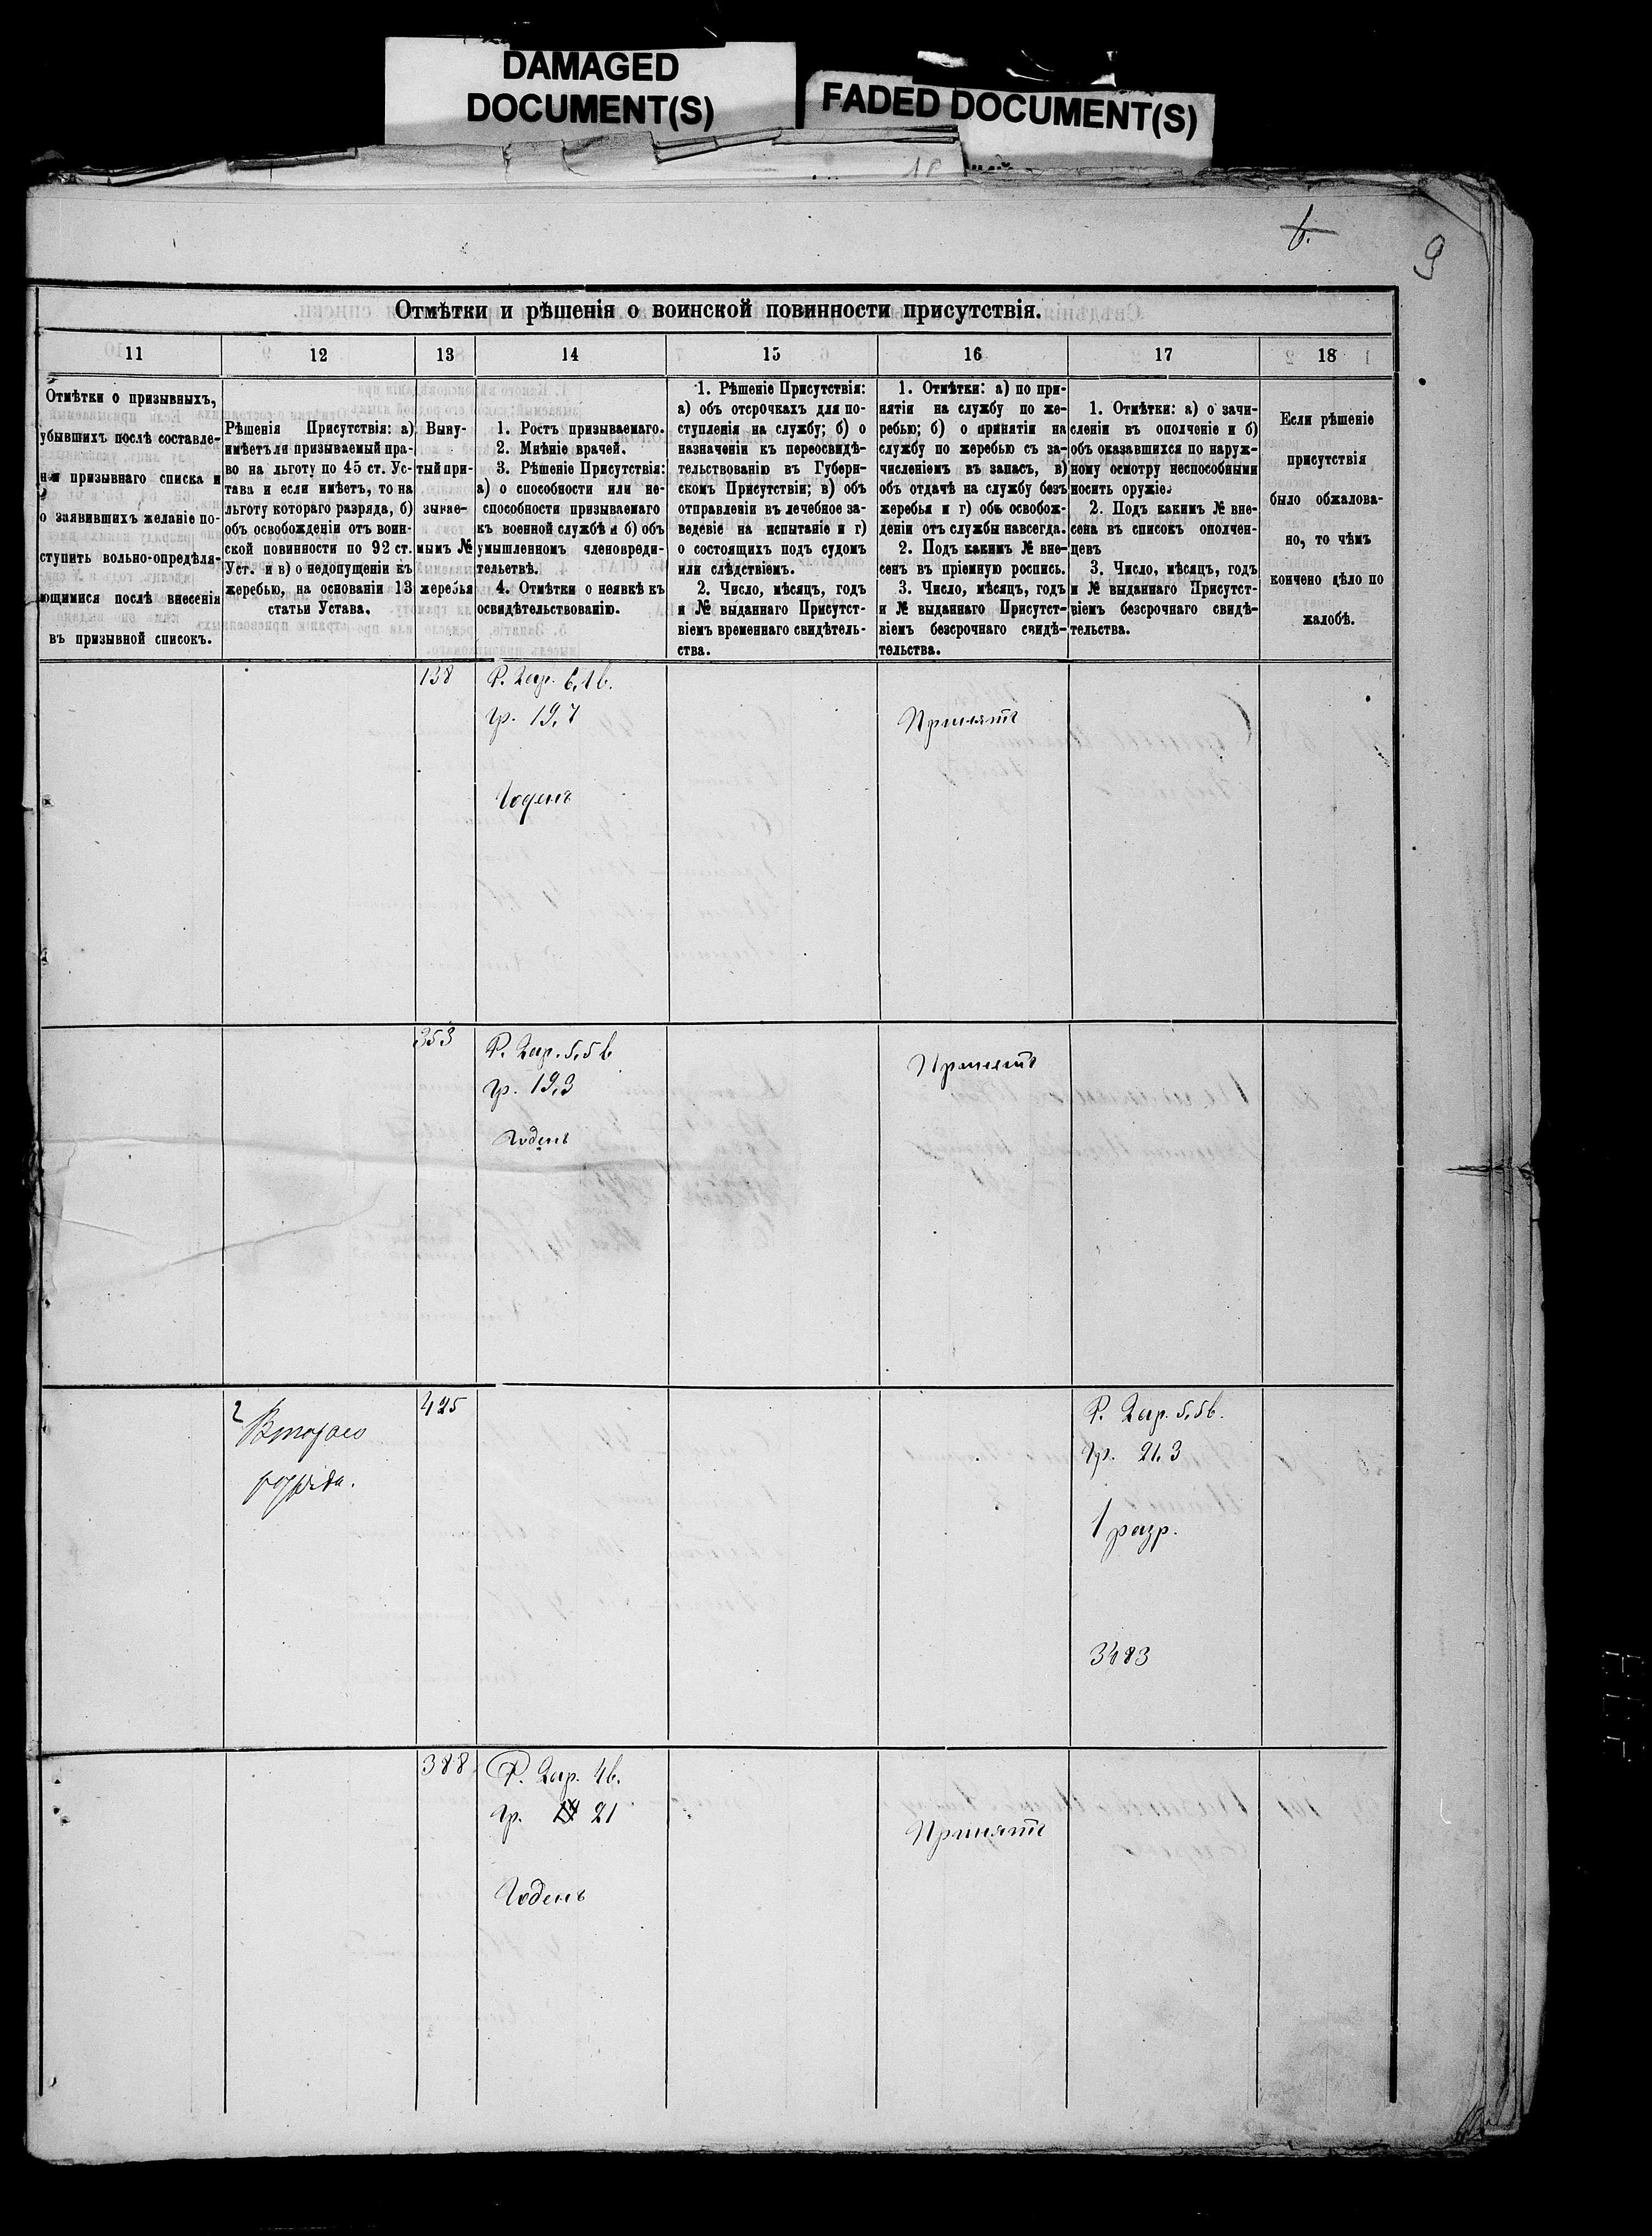 DAMAGED
DOCUMENT(S)
FADED DOCUMENT(S)
18
6.
9
Отмѣтки и рѣшенія о воинской повинности присутствія.
11
12
13
14
15
16
17
18
Отмѣтки о призывныхъ,
убывшихъ послѣ составле-
нія призывнаго списка и
о заявившихъ желаніе по-
ступить вольно-опредѣля-
ющимися послѣ внесенія
въ призывной списокъ.
Рѣшенія Присутствія: а)
имѣетъ ли призываемый пра-
во на льготу по 45 ст. Ус-
тава и если имѣетъ, то на
льготу котораго разряда, б)
объ освобожденіи отъ воин-
ской повинности по 92 ст.
Уст. и в) о недопущеніи къ
жеребью, на основаніи 13
статьи Устава.
Выну-
тый при-
зывае-
мымъ №
жеребья
1. Ростъ призываемаго.
2. Мнѣніе врачей.
3. Рѣшеніе Присутствія:
а) о способности или не-
способности призываемаго
къ военной службѣ и б) объ
умышленномъ членовреди-
тельствѣ.
4. Отмѣтки о неявкѣ къ
освидѣтельствованію.
1. Рѣшеніе Присутствія:
а) объ отсрочкахъ для по-
ступленія на службу; б) о
назначеніи къ переосвидѣ-
тельствованію въ Губерн-
скомъ Присутствіи; в) объ
отправленіи въ лечебное за-
веденіе на испытаніе и г)
о состоящихъ подъ судомъ
или слѣдствіемъ.
2. Число, мѣсяцъ, годъ
и № выданнаго Присутст-
віемъ временнаго свидѣтель-
ства.
1. Отмѣтки: а) по при-
нятіи на службу по же-
ребью; б) о принятіи на
службу по жеребью съ за-
численіемъ въ запасъ, в)
объ отдачѣ на службу безъ
жеребья и г) объ освобож-
деніи отъ службы навсегда.
2. Подъ какимъ № вне-
сенъ въ пріемную роспись.
3. Число, мѣсяцъ, годъ
и № выданнаго Присутст-
віемъ безсрочнаго свидѣ-
тельства.
1. Отмѣтки: а) о зачи-
сленіи въ ополченіе и б)
объ оказавшихся по наруж-
ному осмотру неспособными
носить оружіе.
2. Подъ какимъ № вне-
сена въ списокъ ополчен-
цевъ
3. Число, мѣсяцъ, годъ
и № выданнаго Присутст-
віемъ безсрочнаго свидѣ-
тельства.
Если рѣшеніе
присутствія
было обжалова-
но, то чѣмъ
кончено дѣло по
жалобѣ.
138
Р. 2ар. 6,1 в.
гр. 19,7
Годенъ
Принятъ
353
Р. 2ар. 5,5 в.
гр. 19,3
Годенъ
Принятъ
2
Втораго
разряда.
425
Р. 2ар. 5,5 в.
гр. 21,3
1 разр.
3483
388
Р. 2ар. 4 в.
гр. 21
Годенъ
Принятъ